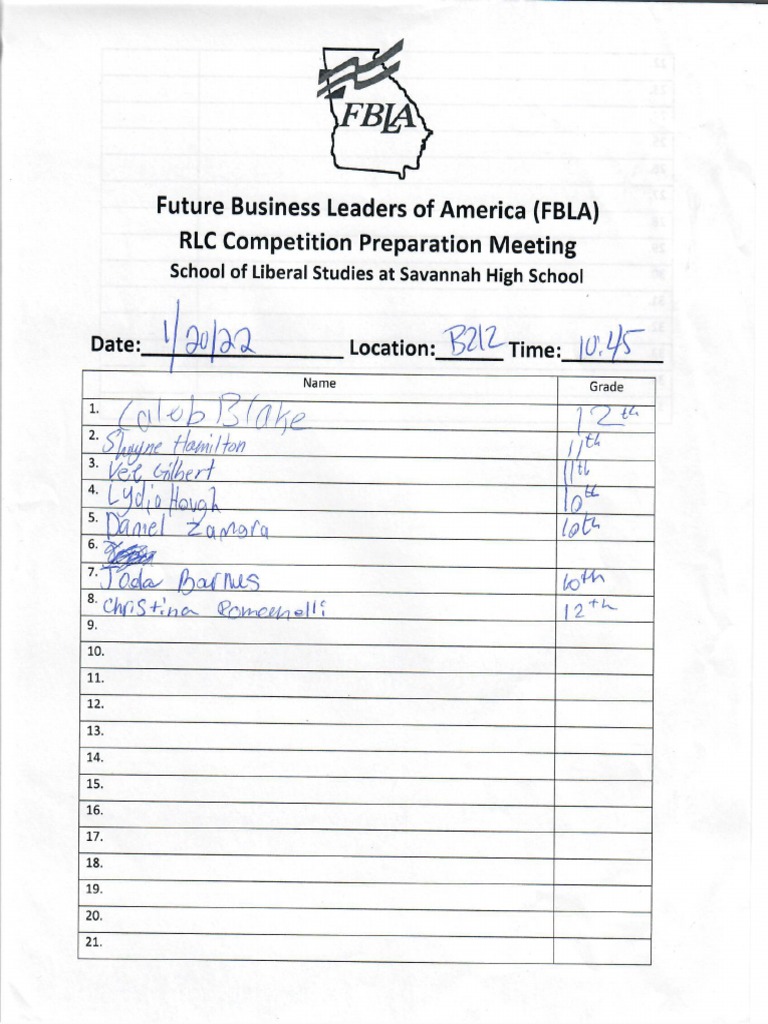 FBLA
Future Business Leaders of America (FBLA)
RLC Competition Preparation Meeting
School of Liberal Studies at Savannah High School
Date: 1/20/22 Location: B212 Time: 10:45
Name Grade
1. Caleb Blake 12th
2. Shayne Hamilton 11th
3. Vee Gilbert 11th
4. Lydia Hough 10th
5. Daniel Zamora 10th
6.
7. Barnes 10th
8. Christina 12th
9.
10.
11.
12.
13.
14.
15.
16.
17.
18.
19.
20.
21.